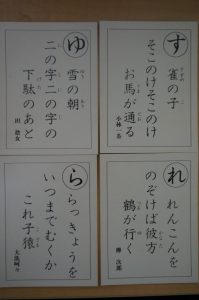 す
雀の子
そこのけそこのけ
お馬が通る
小林一茶
ゆ
雪の朝
二の字二の字の
下駄のあと
田 捨女
れ
れんこんを
のぞけば彼方
鶴が行く
次郎
ら
らっきょうを
いつまでむくか
これ子猿